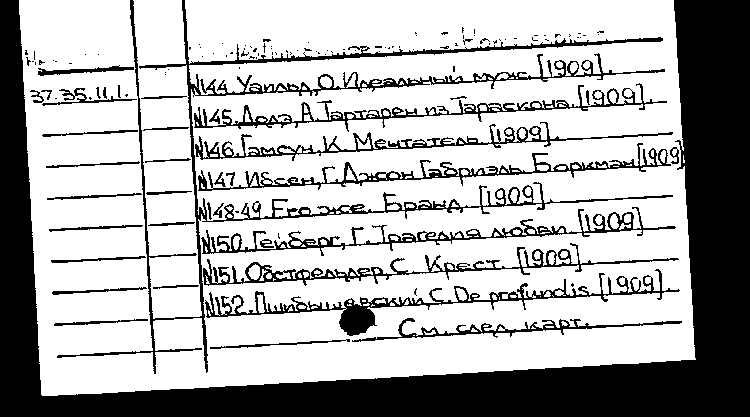 37.35.11.1. N144. Уайльд, О. Идеальный муж. [1909].
N145. Додэ, А. Тартарен из Тараскона. [1909].
N146. Гамсун, К. Мечтатель. [1909].
N147. Ибсен, Г. Джон Габриэль Боркман [1909]
N148-49. Его же. Бранд. [1909].
N150. Гейберг, Г. Трагедия любви [1909]
N151. Обстфельдер, С. Крест. [1909].
N152. Пшибышевский, С. De profundis. [1909].
См. след. карт.